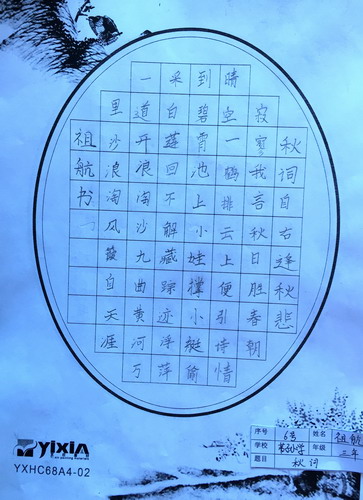 秋词自右逢秋悲
寂寥我言秋日胜春朝
晴空一鹤排云上便引诗情
到碧霄池上小娃撑小艇偷
采白莲回不解藏踪迹浮萍
一道开浪淘沙九曲黄河万
里沙浪淘风簸自天涯
祖航书
序号 姓名 祖航
学校 小学 年级 三年
题目 秋词
yixin
YXHC68A4-02